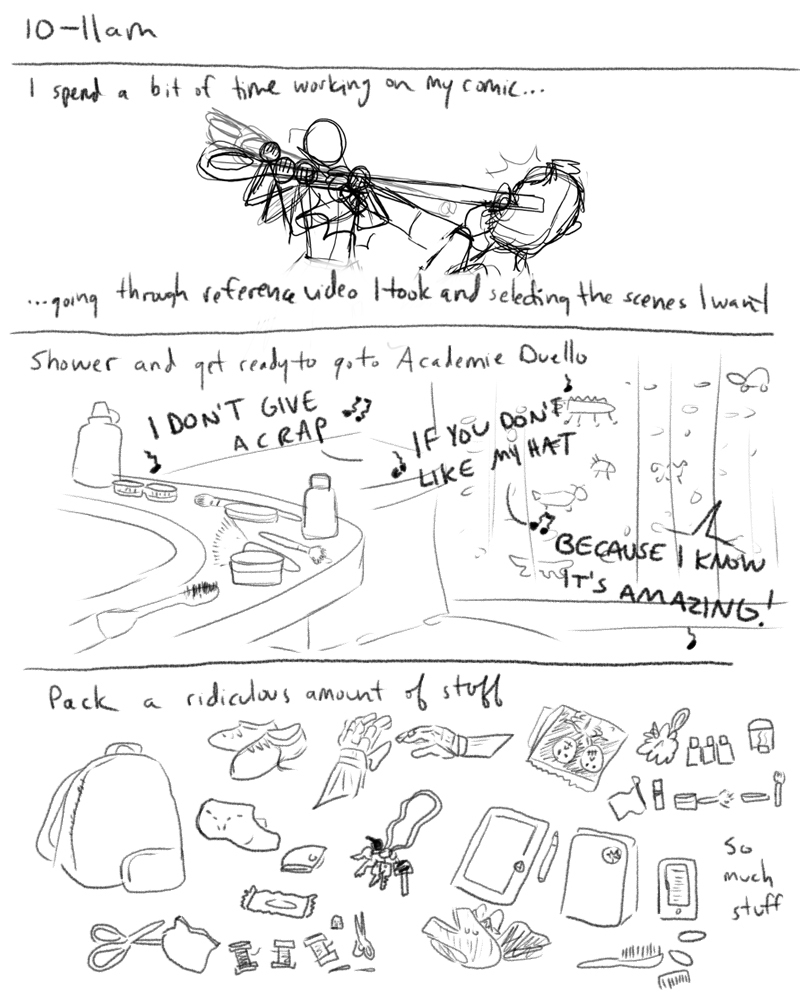 10-11am
I spend a bit of time working on my comic...
...going through reference video I took and selecting the scenes I want
Shower and get ready to go to Academie Duello
I DON'T GIVE
A CRAP
IF YOU DON'T
LIKE MY HAT
BECAUSE I KNOW
IT'S AMAZING!
Pack a ridiculous amount of stuff
So
much
stuff